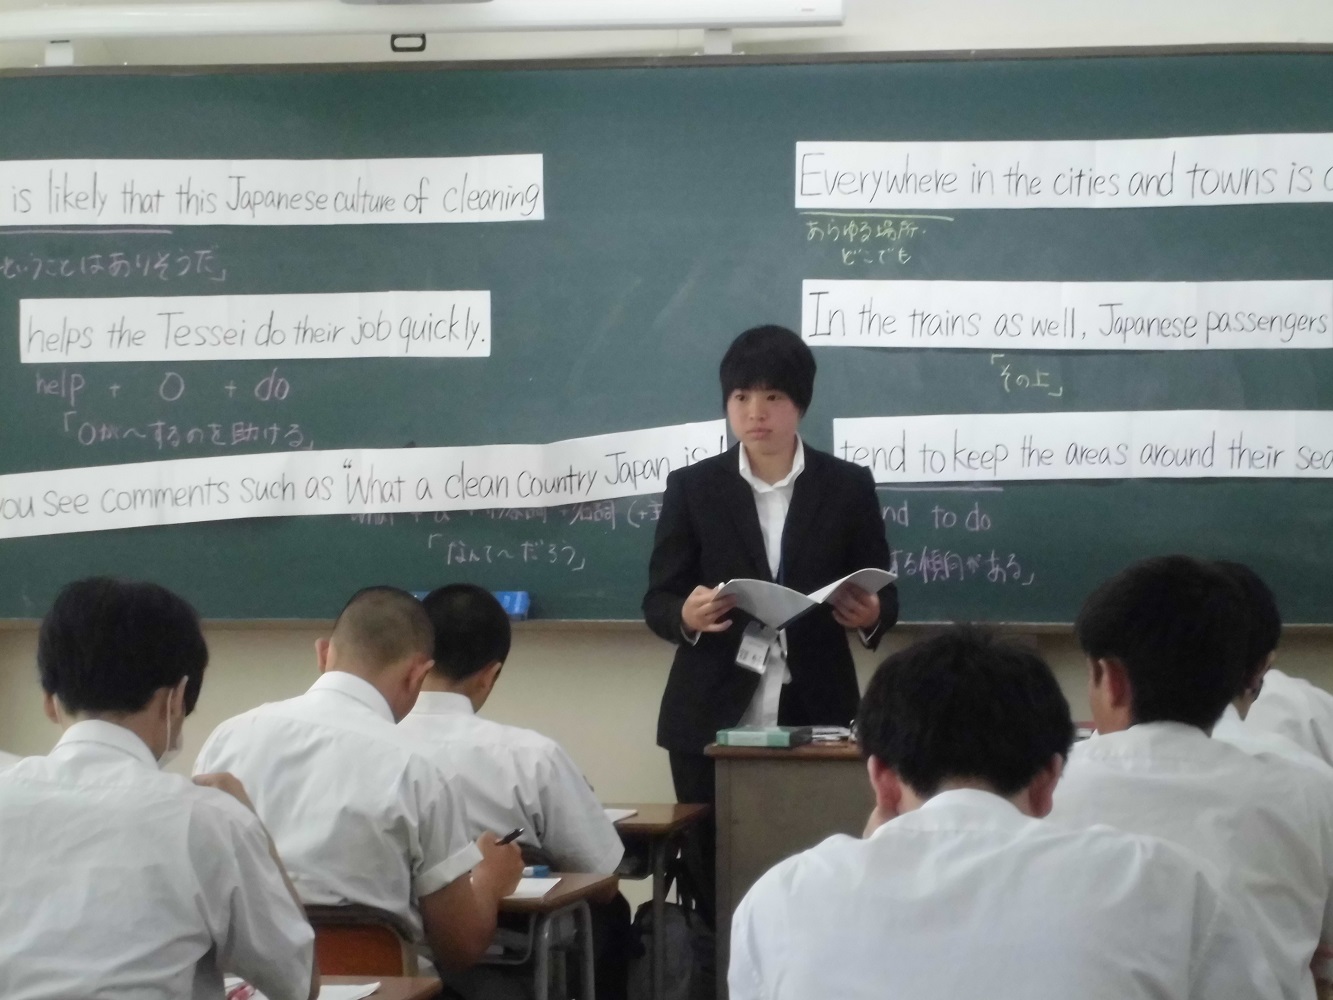 is likely that this Japanese culture of cleaning
ということはありそうだ」
helps the Tessei do their job quickly.
help + O + do
「Oが～するのを助ける」
you see comments such as "What a clean country Japan is!
「なんて～だろう」
Everywhere in the cities and towns is
あらゆる場所.
どこでも
In the trains as well, Japanese passengers
「その上」
tend to keep the areas around their
to do
する傾向がある」